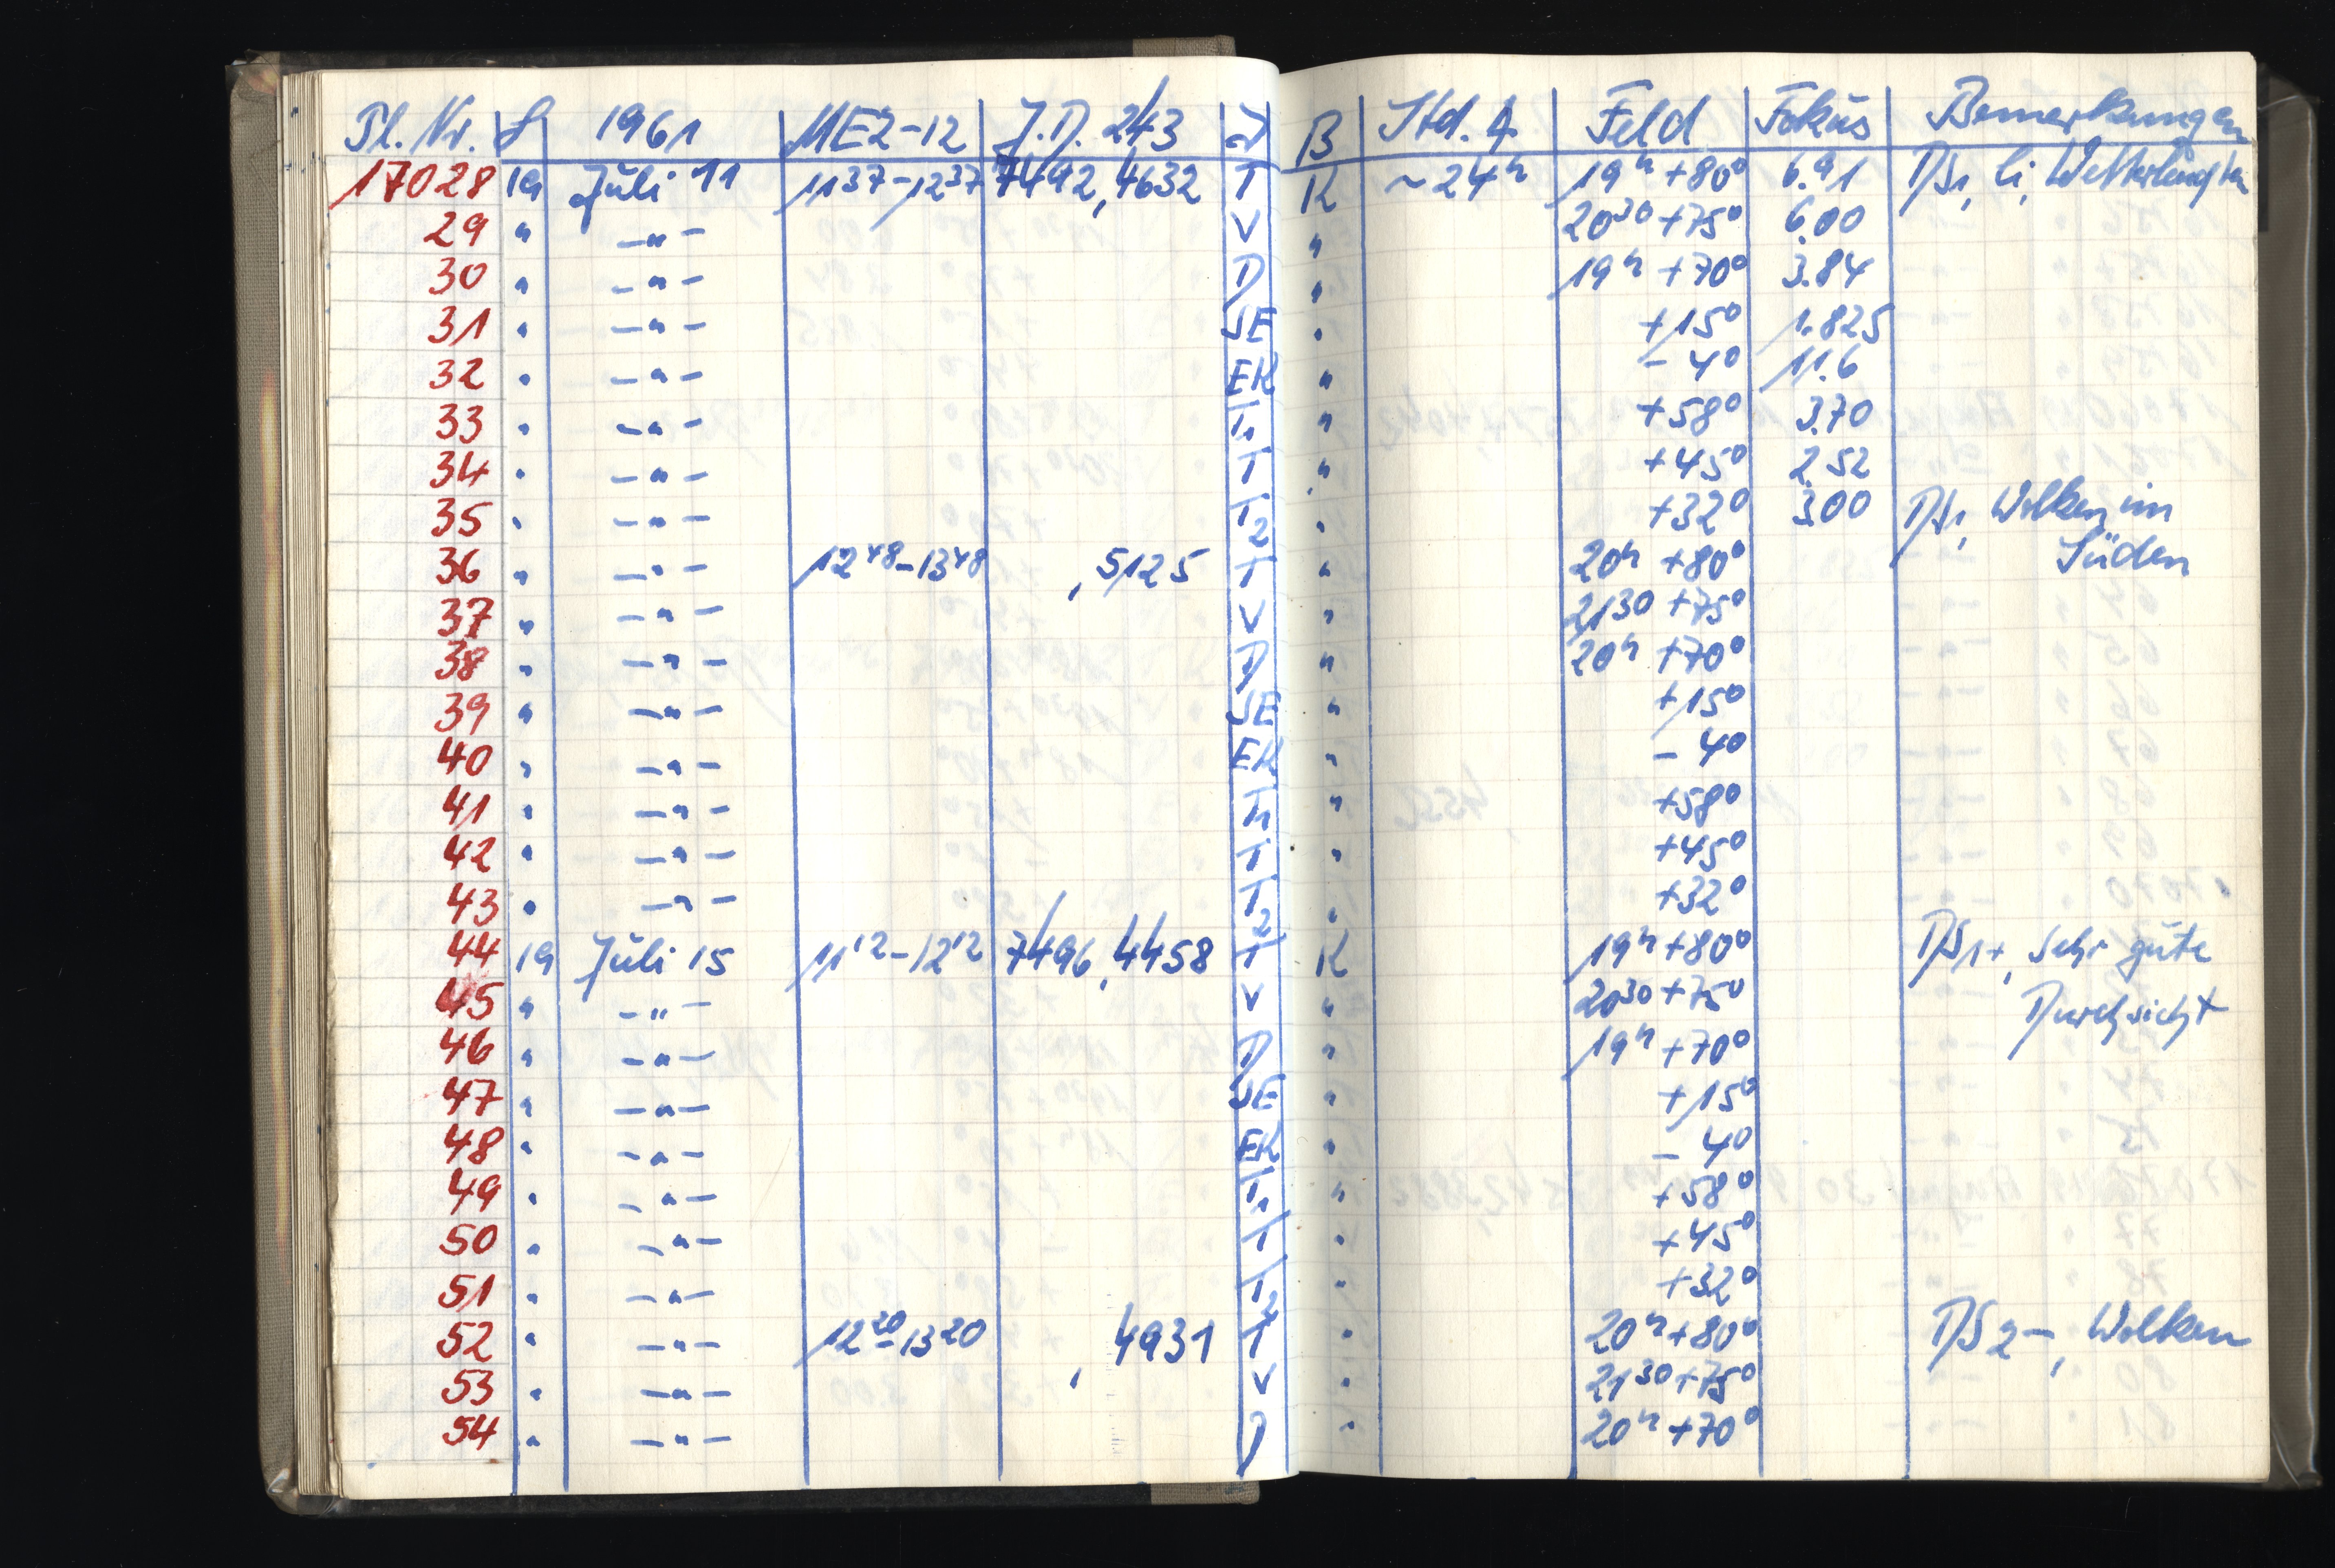 Pl. Nr. S 1961 MEZ-12 J.D. 243 J B Std. A Feld Fokus Bemerkungen
17028 19 Juli 11 11 37 - 12 37 7492,4632 T K ~24h 19h +80° 6.91 DS1, li, Wetterleuchten
29 " -"- V " 20 30 +75° 6.00
30 " -"- D " 19h +70° 3.84
31 " -"- SE " +15° 1.825
32 " -"- EK " - 4° 11.6
33 " -"- T1 " +58° 3.70
34 " -"- T " +45° 2.52
35 " -"- T2 " +32° 3.00 DS1, Wolken im
36 " -"- 12 48 - 13 48 ,5125 T " 20h +80° Süden
37 " -"- V " 21 30 +75°
38 " -"- D " 20h +70°
39 " -"- SE " +15°
40 " -"- EK " - 4°
41 " -"- T1 " +58°
42 " -"- T " +45°
43 " -"- T2 " +32°
44 19 Juli 15 11 12 - 12 12 7496,4458 T K 19h +80° DS1+, sehr gute
45 " -"- V " 20 30 +75° Durchsicht
46 " -"- D " 19h +70°
47 " -"- SE " +15°
48 " -"- EK " - 4°
49 " -"- T1 " +58°
50 " -"- T " +45°
51 " -"- T2 " +32°
52 " -"- 12 20 - 13 20 ,4931 T " 20h +80° DS2-, Wolken
53 " -"- V " 21 30 +75°
54 " -"- D " 20h +70°